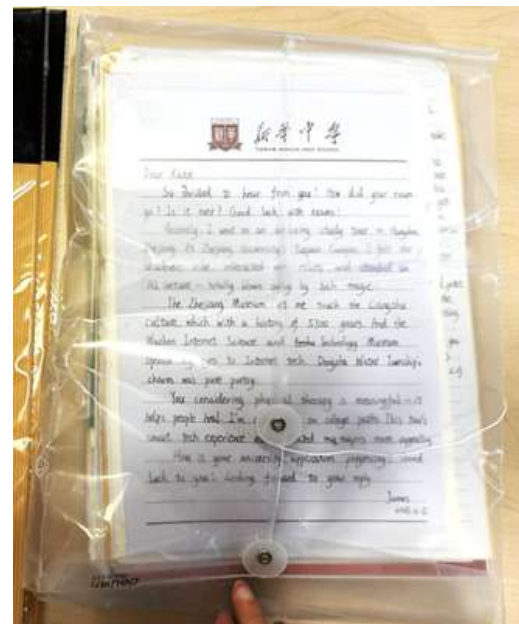 新华中学
Dear Kate
So thrilled to hear from you! How did your exam
go? Is it over? Good luck with exams!
Recently, I went on an amazing study tour in Hangzhou
Zhejiang. At Zhejiang University's Campus, I felt the
academic vibe, interacted with and attended an
AI lecture - totally blown away by tech magic.
The Zhejiang Museum let me touch the Liangzhu
culture, which with a history of 5300 years. And the
Wuzhen Internet Science and Technology Museum
opened my eyes to Internet tech. Water Township's
charm was pure poetry.
You considering physical therapy is meaningful - it
helps people heal. I'm on college paths. This tour's
smart tech experience majors more appealing
How is your university application progressing? Good
luck to you! Looking forward to your reply.
James